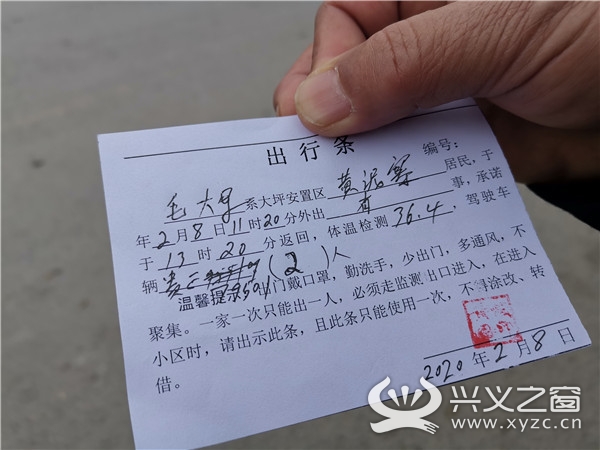 出行条
编号：
毛大
系大坪安置区 黄泥寨 居民，于
年2月8日11时20分外出 事，承诺
于13时20分返回，体温检测36.4，驾驶车
辆 (2)人
温馨提示：出门戴口罩，勤洗手，少出门，多通风，不
聚集。一家一次只能出一人，必须走监测出口进入，在进入
小区时，请出示此条，且此条只能使用一次，不得涂改、转
借。
2020年2月8日
兴义之窗
www.xyzc.cn